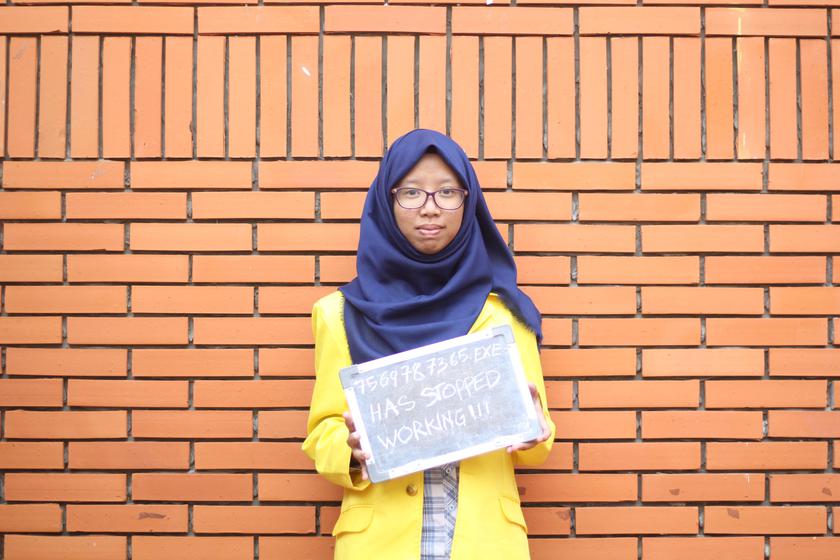 7569787365.EXE
HAS STOPPED
WORKING!!!